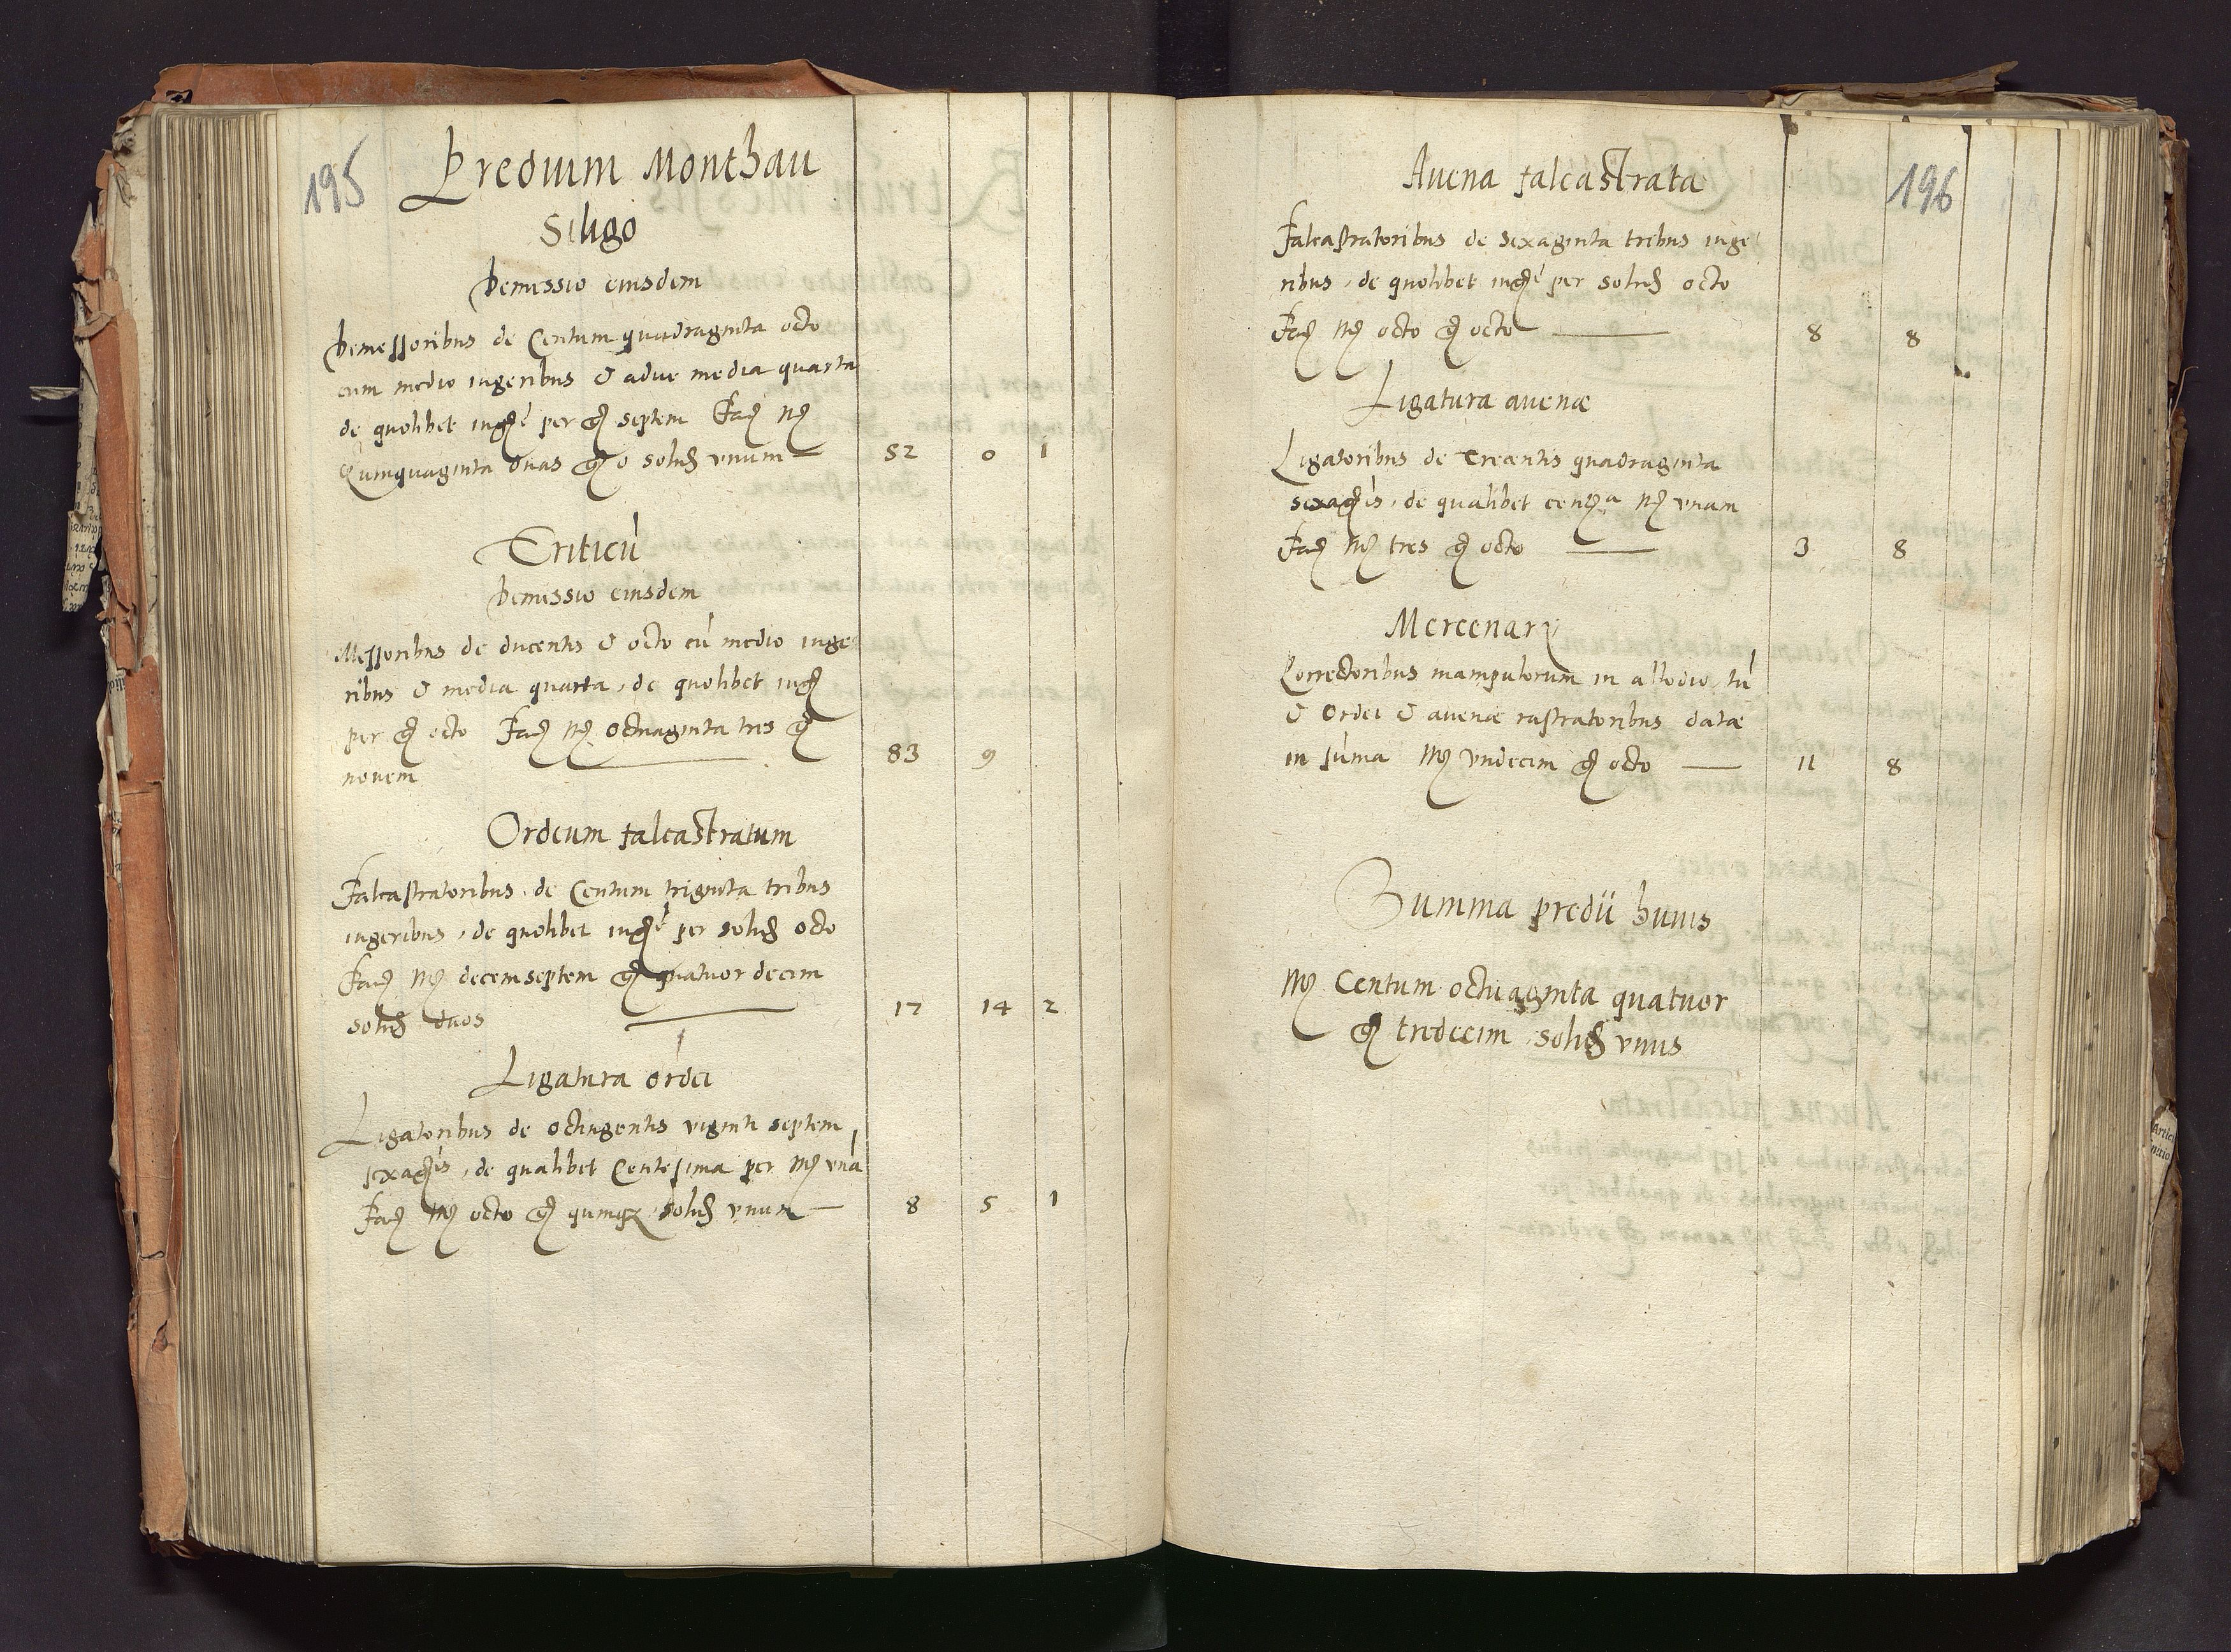 195
Predium Monthau
Siligo
Demessio eiusdem
Demessoribus de Centum quadraginta octo
cum medio iugeribus & adhuc media quarta
de quolibet iuge per gr septem Fac mr
Quinquaginta duas gr 0 solid vnum — 52 0 1
Triticū
Demessio eiusdem
Messoribus de ducentis & octo cū medio iuge
ribus & media quarta, de quolibet iug
per gr octo Fac mr octuaginta tres gr
novem — 83 9
Ordeum falcastratum
Falcastratoribus de Centum triginta tribus
iugeribus, de quolibet iuge per solid octo
Fac mr decemseptem gr quatuordecim
solid duos — 17 14 2
Ligatura ordei
Ligatoribus de octingentis viginti septem
sexagis, de qualibet Centesima per mr vnā
Fac mr octo gr quinq solid vnum — 8 5 1
196
Auena falcastrata
Falcastratoribus de sexaginta tribus iuge
ribus, de quolibet iuge per solid octo
Fac mr octo gr octo — 8 8
Ligatura auenæ
Ligatoribus de trecentis quadraginta
sexagis, de qualibet centa mr vnam
Fac mr tres gr octo — 3 8
Mercenarÿ
Correctoribus manipulorum in allodio, tū
& ordei & auenæ rastratoribus datæ
in sūma mr vndecim gr octo — 11 8
Summa predii huius
mr Centum octuaginta quatuor
gr tredecim solid vnus